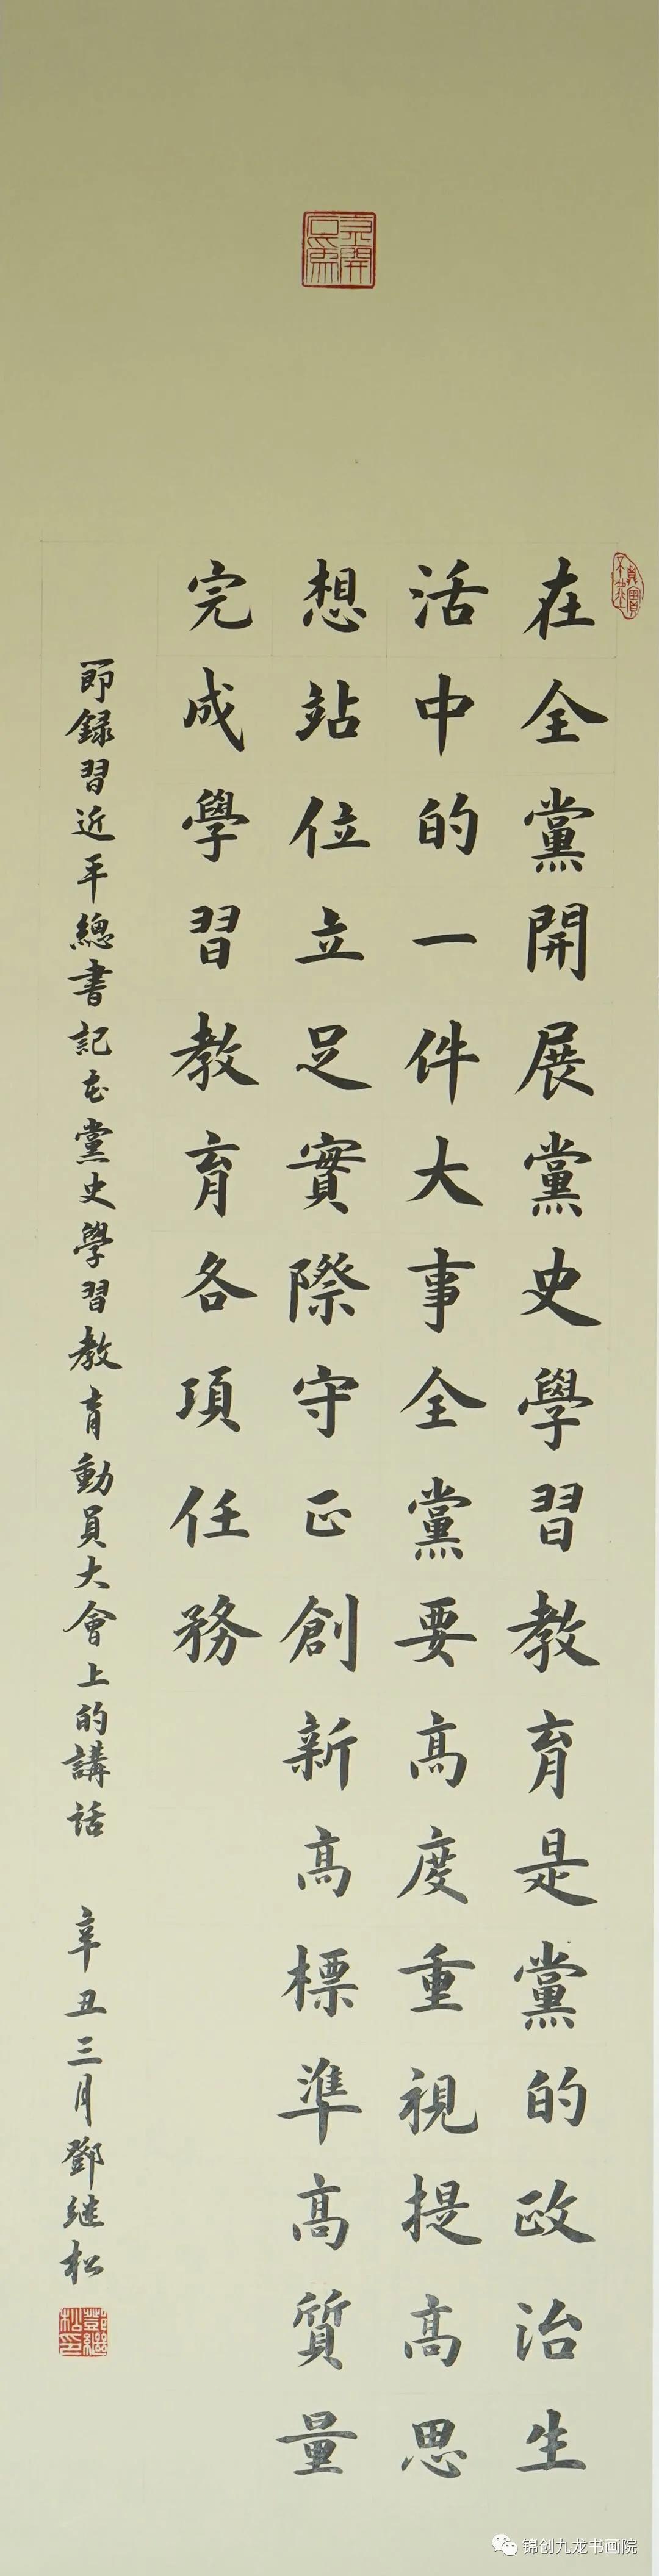 在全黨開展黨史學習教育是黨的政治生
活中的一件大事全黨要高度重視提高思
想站位立足實際守正創新高標準高質量
完成學習教育各項任務
節録習近平總書記在黨史學習教育動員大會上的講話 辛丑三月鄧继松
鄧繼松印
锦创九龙书画院